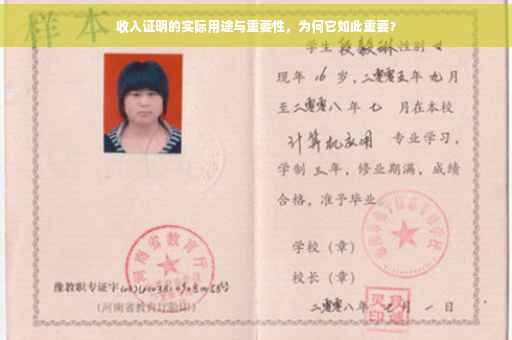 收入证明的实际用途与重要性，为何它如此重要？
样本
学生段毅琳性别女
现年 16 岁，二零零五年九月
至二零零八年七 月在本校
计算机应用 专业学习，
学制三年，修业期满，成绩
合格，准予毕业
学校（章）
校长（章）
二零零八年七月一日
河南省教育厅
豫教职专证字
（河南省教育厅验印）